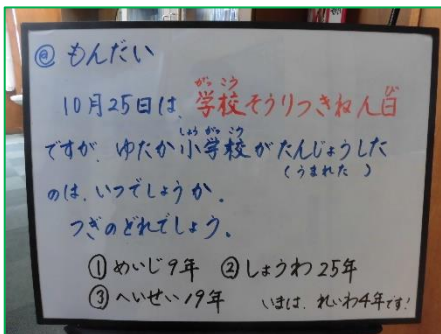 @ もんだい
10月25日は、学校そうりつきねん日
ですが、ゆたか小学校がたんじょうした
(うまれた)
のは、いつでしょうか。
つぎのどれでしょう。
① めいじ9年 ② しょうわ25年
③ へいせい19年 いまは、れいわ4年です!